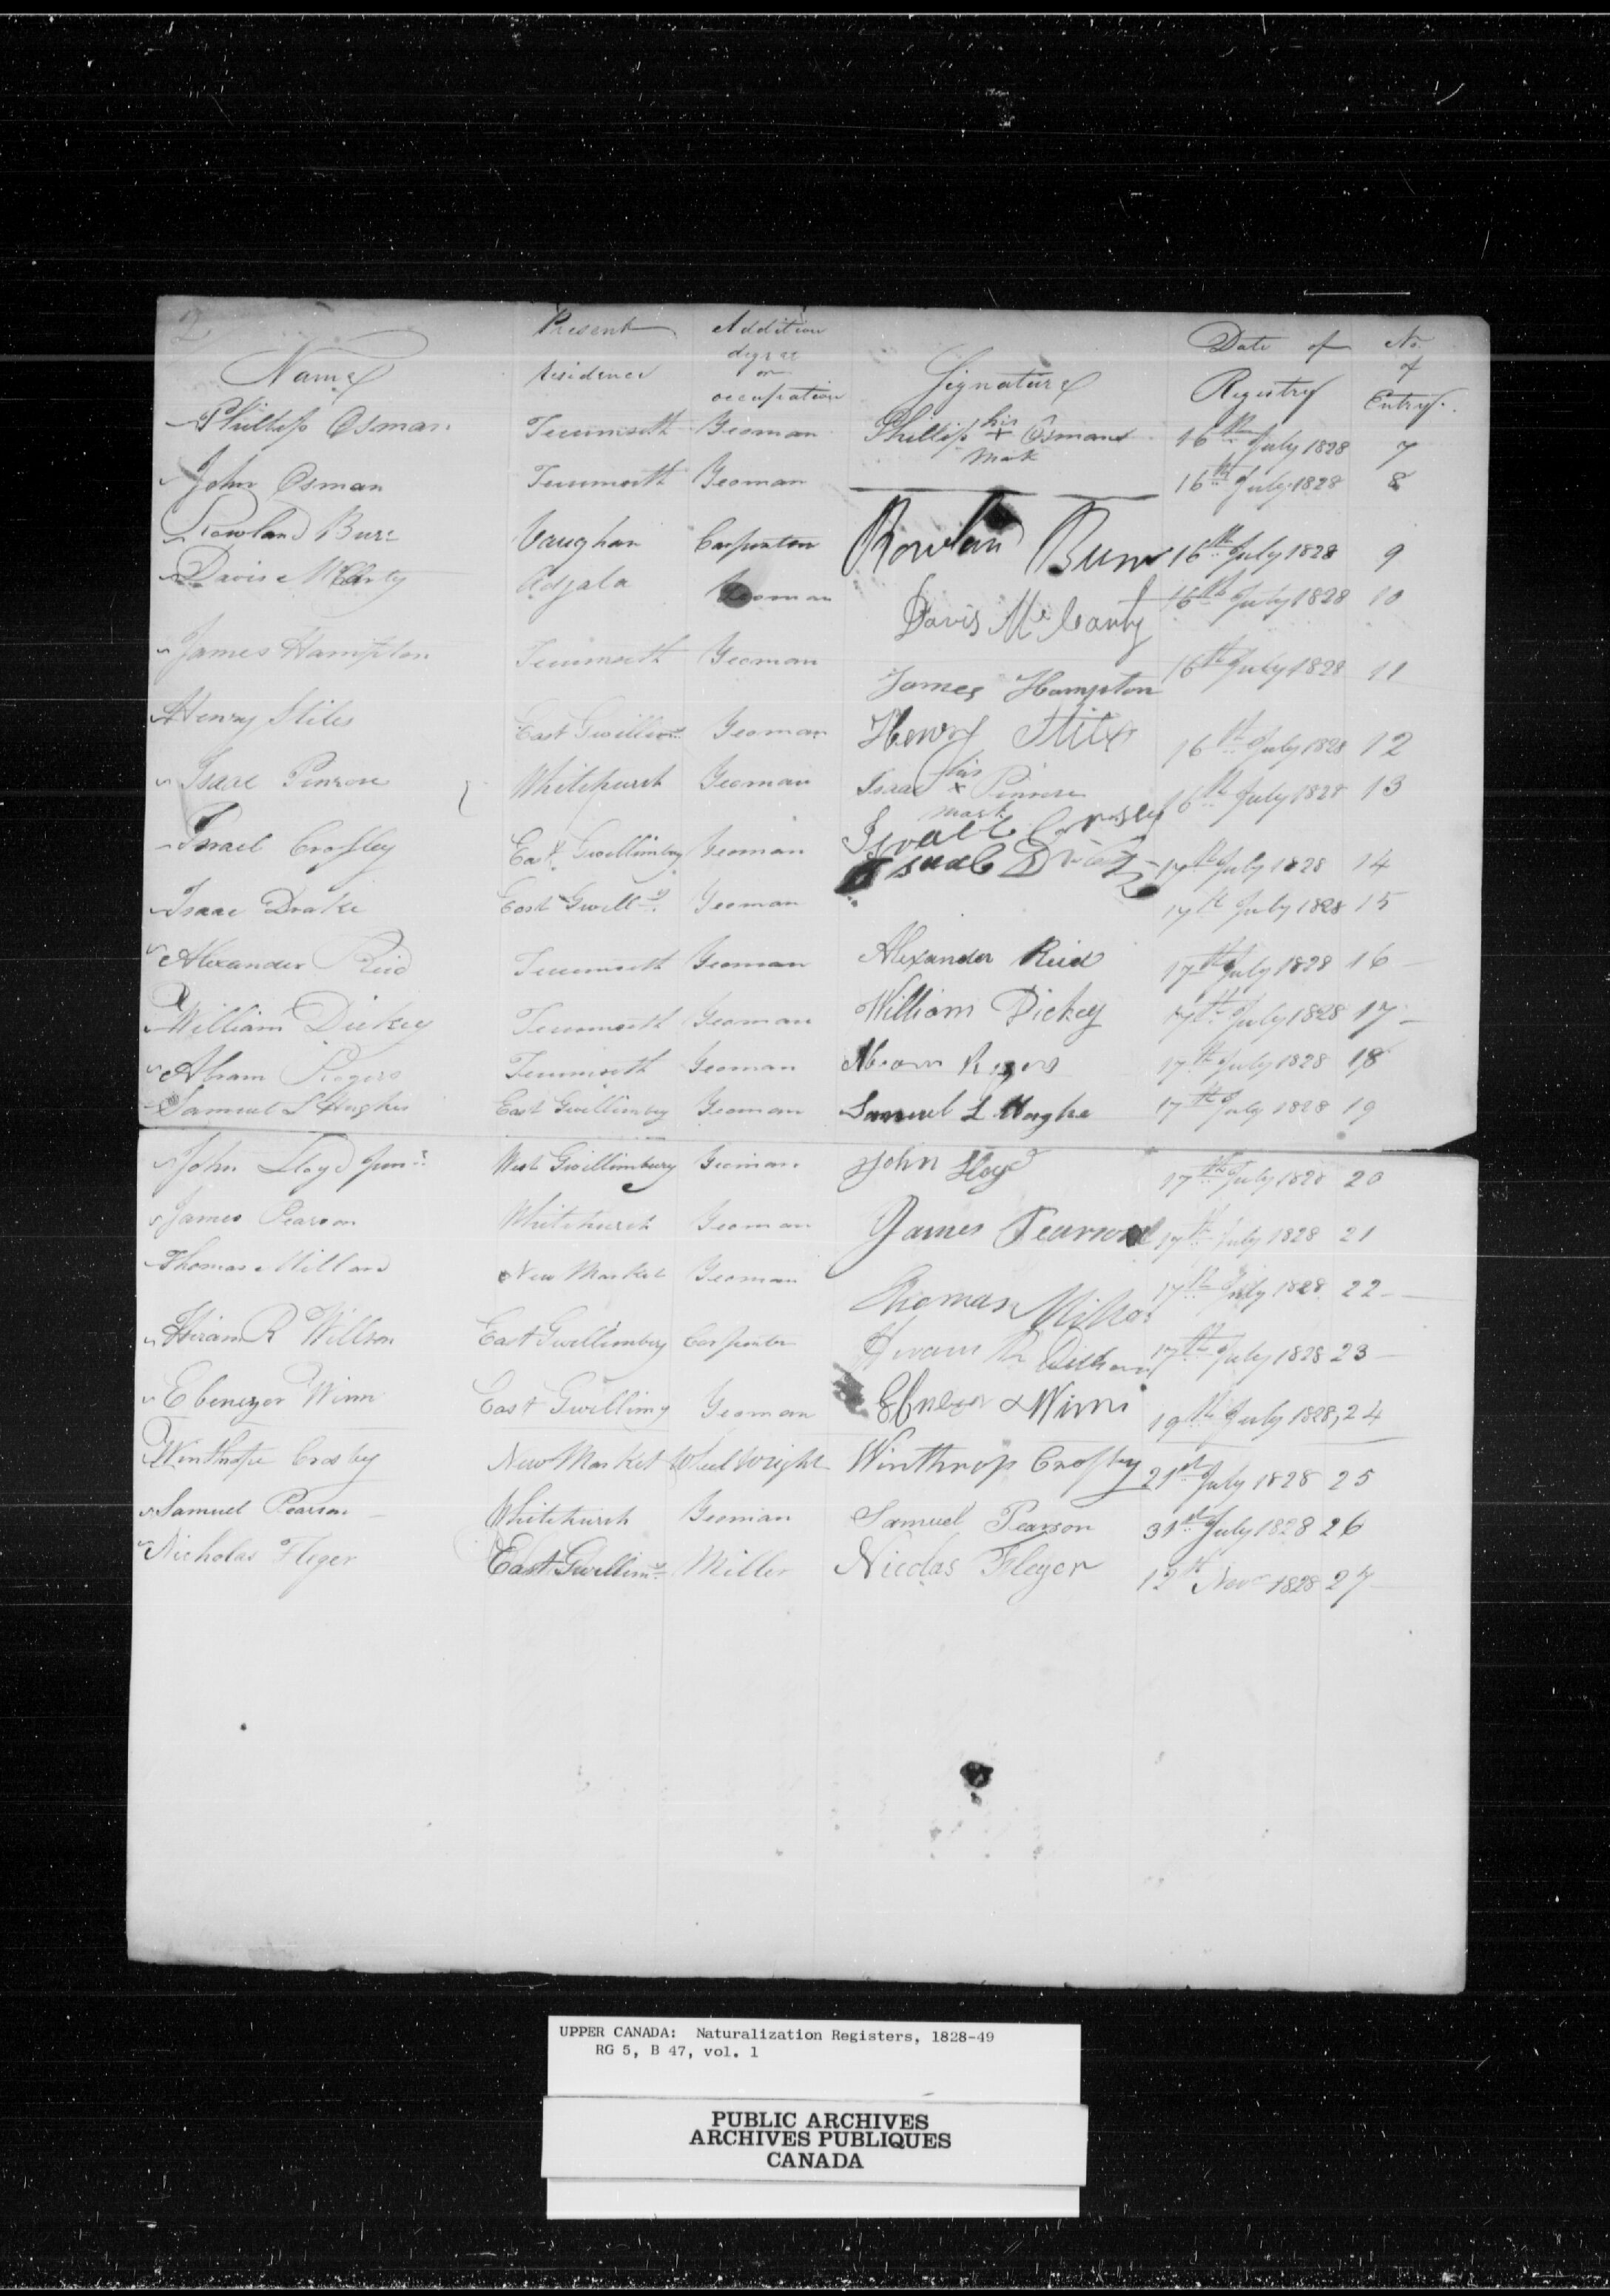 2
Name Present residence Addition degree or occupation Signature Date of Registry No. of Entry.
Phillip Osman Tecumseth Yeoman Phillip his x mark Osman 16th July 1828 7
John Osman Tecumseth Yeoman 16th July 1828 8
Rowland Burr Vaughan Carpenter Rowland Burr 16th July 1828 9
Davis McCarty Adjala Yeoman Davis McCarty 16th July 1828 10
James Hampton Tecumseth Yeoman James Hampton 16th July 1828 11
Henry Stiles East Gwillimy Yeoman Henry Stiles 16th July 1828 12
Isaac Penrose Whitchurch Yeoman Isaac his x mark Penrose 16th July 1828 13
Israel Crossley East Gwillimbry Yeoman 17th July 1828 14
Isaac Drake East Gwilly Yeoman 17th July 1828 15
Alexander Reid Tecumseth Yeoman Alexander Reid 17th July 1828 16
William Dickey Tecumseth Yeoman William Dickey 17th July 1828 17
Abram Rogers Tecumseth Yeoman Abram Rogers 17th July 1828 18
Samuel L Hughes East Gwillimbry Yeoman Samuel L Hughs 17th July 1828 19
John Lloyd Junr West Gwillimbury Yeoman John Lloyd 17th July 1828 20
James Pearson Whitchurch Yeoman James Pearson 17th July 1828 21
Thomas Millard New Market Yeoman Thomas 17th July 1828 22
Hiram R Willson East Gwillimbery Carpenter Hiram R 17th July 1828 23
Ebenezer Winn East Gwillimy Yeoman Ebenezer Winn 19th July 1828, 24
Winthrope Crosby New Market Wheelwright Winthrop Crosby 21st July 1828 25
Samuel Pearson Whitchurch Yeoman Samuel Pearson 31st July 1828 26
Nicholas Fleger East Gwillimy Miller Nicolas Fleger 12th Novr 1828 27
UPPER CANADA: Naturalization Registers, 1828-49
RG 5, B 47, vol. 1
PUBLIC ARCHIVES
ARCHIVES PUBLIQUES
CANADA